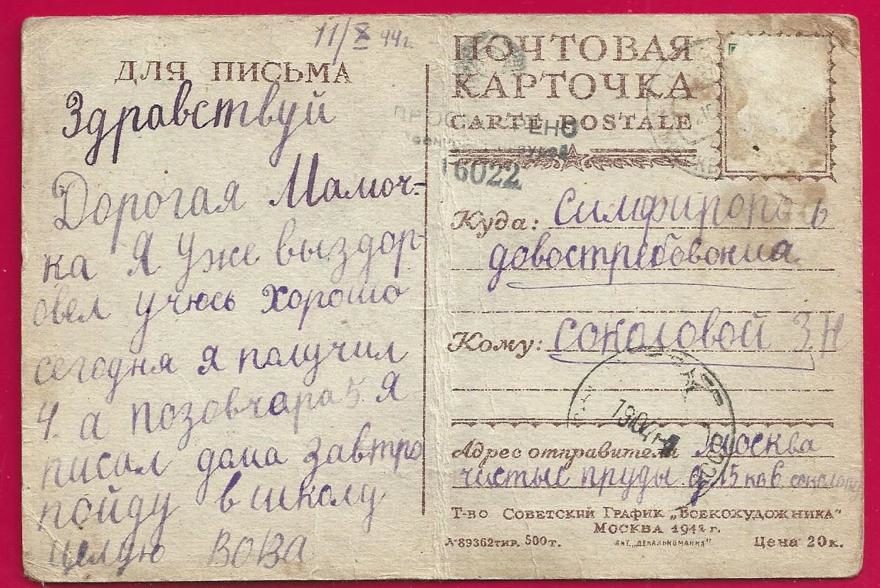 11/X 44г.
ДЛЯ ПИСЬМА
Здравствуй
Дорогая Мамоч-
ка Я уже выздор-
овел учюсь хорошо
сегодня я получил
4. а позовчара 5. Я
писал дома завтра
пойду в школу
целую ВОВА
ПОЧТОВАЯ
КАРТОЧКА
CARTE POSTALE
ЕНО
16022
Куда: Симфирополь
довостребования
Кому: Соколовой З.Н
Адрес отправителя Москва
чистые пруды д 15 кв 6
Т-во Советский График „Всекохудожника"
Москва 1942 г.
А-89362 тир. 500 т. Лит. „Декалькомания" Цена 20 к.